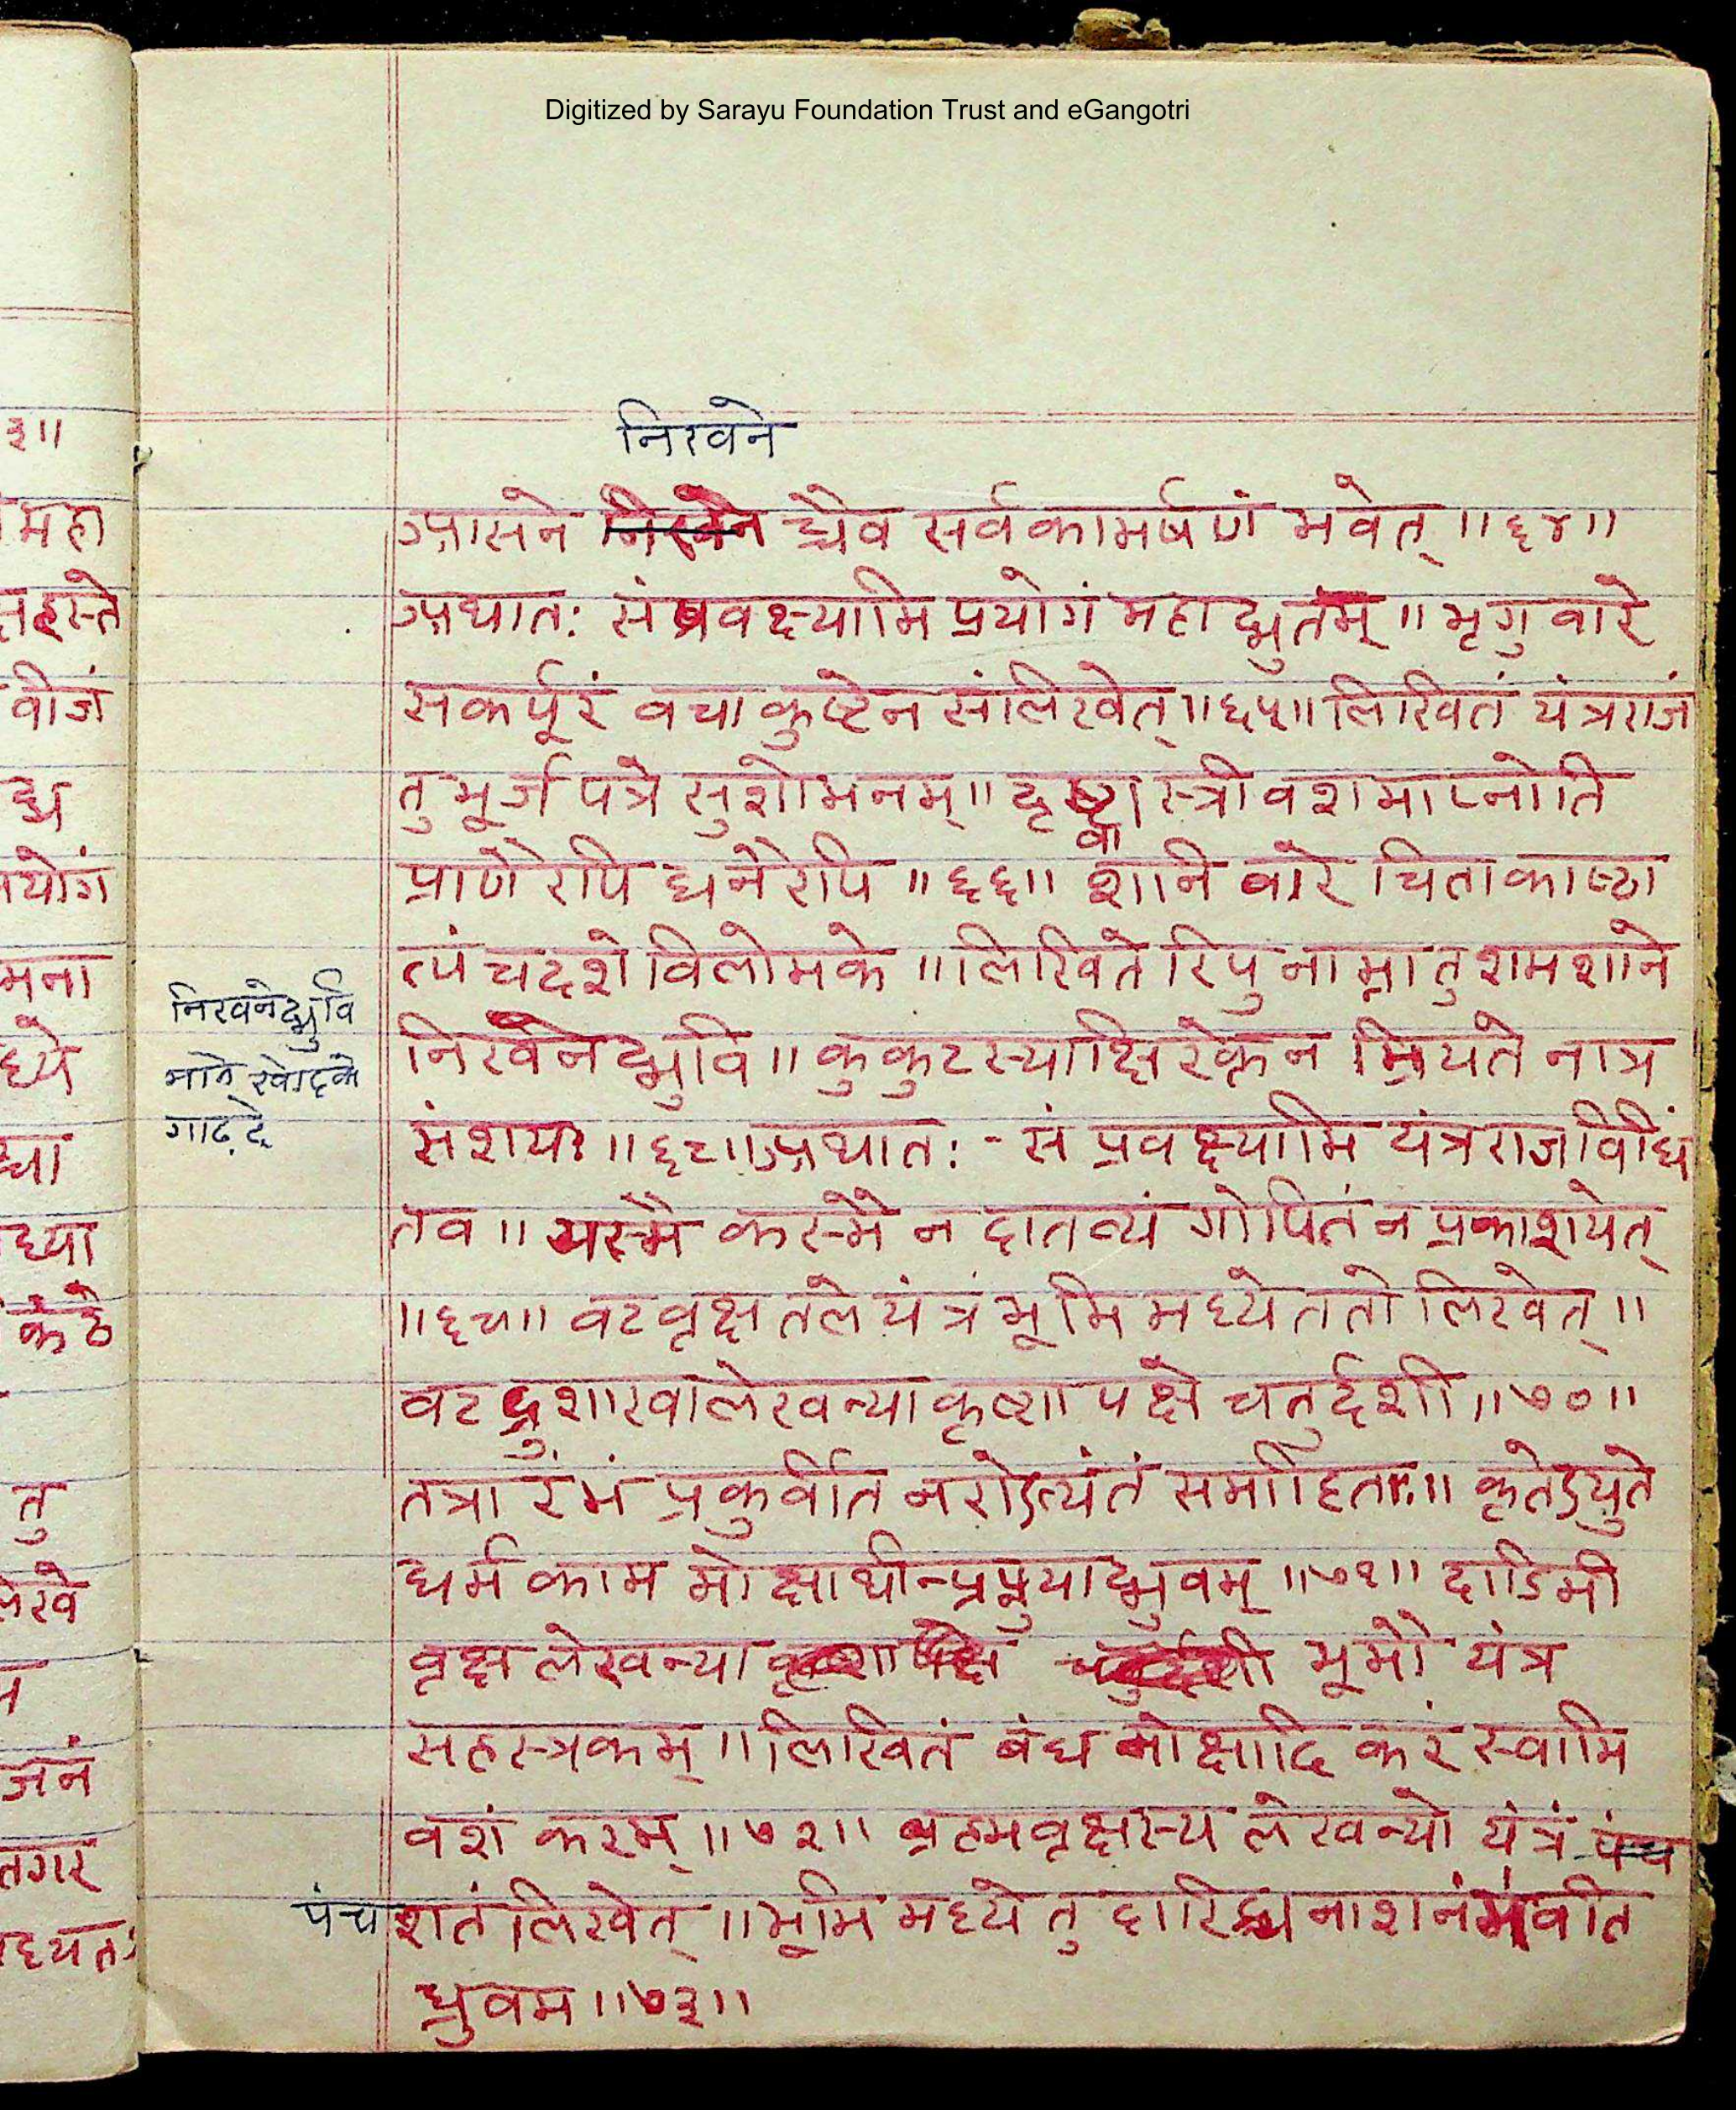 Digitized by Sarayu Foundation Trust and eGangotri
निखने
आसने चैव सर्वकामर्षणं भवेत् ॥६४॥
अथातः संप्रवक्ष्यामि प्रयोगं महाद्भुतम् ॥ भृगु वारे
सकर्पूरं वचा कुष्टेन संलिखेत् ॥६५॥ लिखितं यंत्रराजं
तु भूर्ज पत्रे सुशोभनम् ॥ दृष्ट्वा स्त्री वशमाप्नोति
प्राणैरपि धनैरपि ॥६६॥ शनि वारे चिताकाष्ठा
त्पंचदशे विलोमके ॥ लिखिते रिपु नाम्ना तु शमशाने
निखनेद्भुवि
निखनेद्भुवि ॥ कुकुटस्याक्षि रक्तेन म्रियते नात्र
गाढ़ दे
संशयः ॥६८॥ अथातः - सं प्रवक्ष्यामि यंत्रराजविधिं
तव ॥ यस्मै कस्मै न दातव्यं गोपितं न प्रकाशयेत्
॥६९॥ वटवृक्ष तले यंत्रं भूमि मध्ये ततो लिखेत् ॥
वट द्रुशाखालेखन्या कृष्ण पक्षे चतुर्दशी ॥७०॥
तत्रा रंभं प्रकुर्वीत नरोऽत्यंतं समाहितः ॥ कृतेऽयुते
धर्म काम मोक्षार्थान्प्रप्नुयाद्भुवम् ॥७१॥ दाडिमी
वृक्ष लेखन्या भूमौ यंत्र
सहस्त्रकम् ॥ लिखितं बंध मोक्षादि करं स्वामि
वशं करम् ॥७२॥ ब्रहमवृक्षस्य लेखन्यो यंत्रं पंच
पंच शतं लिखेत् ॥ भूमि मध्ये तु दारिद्र्य नाशनं भवति
ध्रुवम ॥७३॥